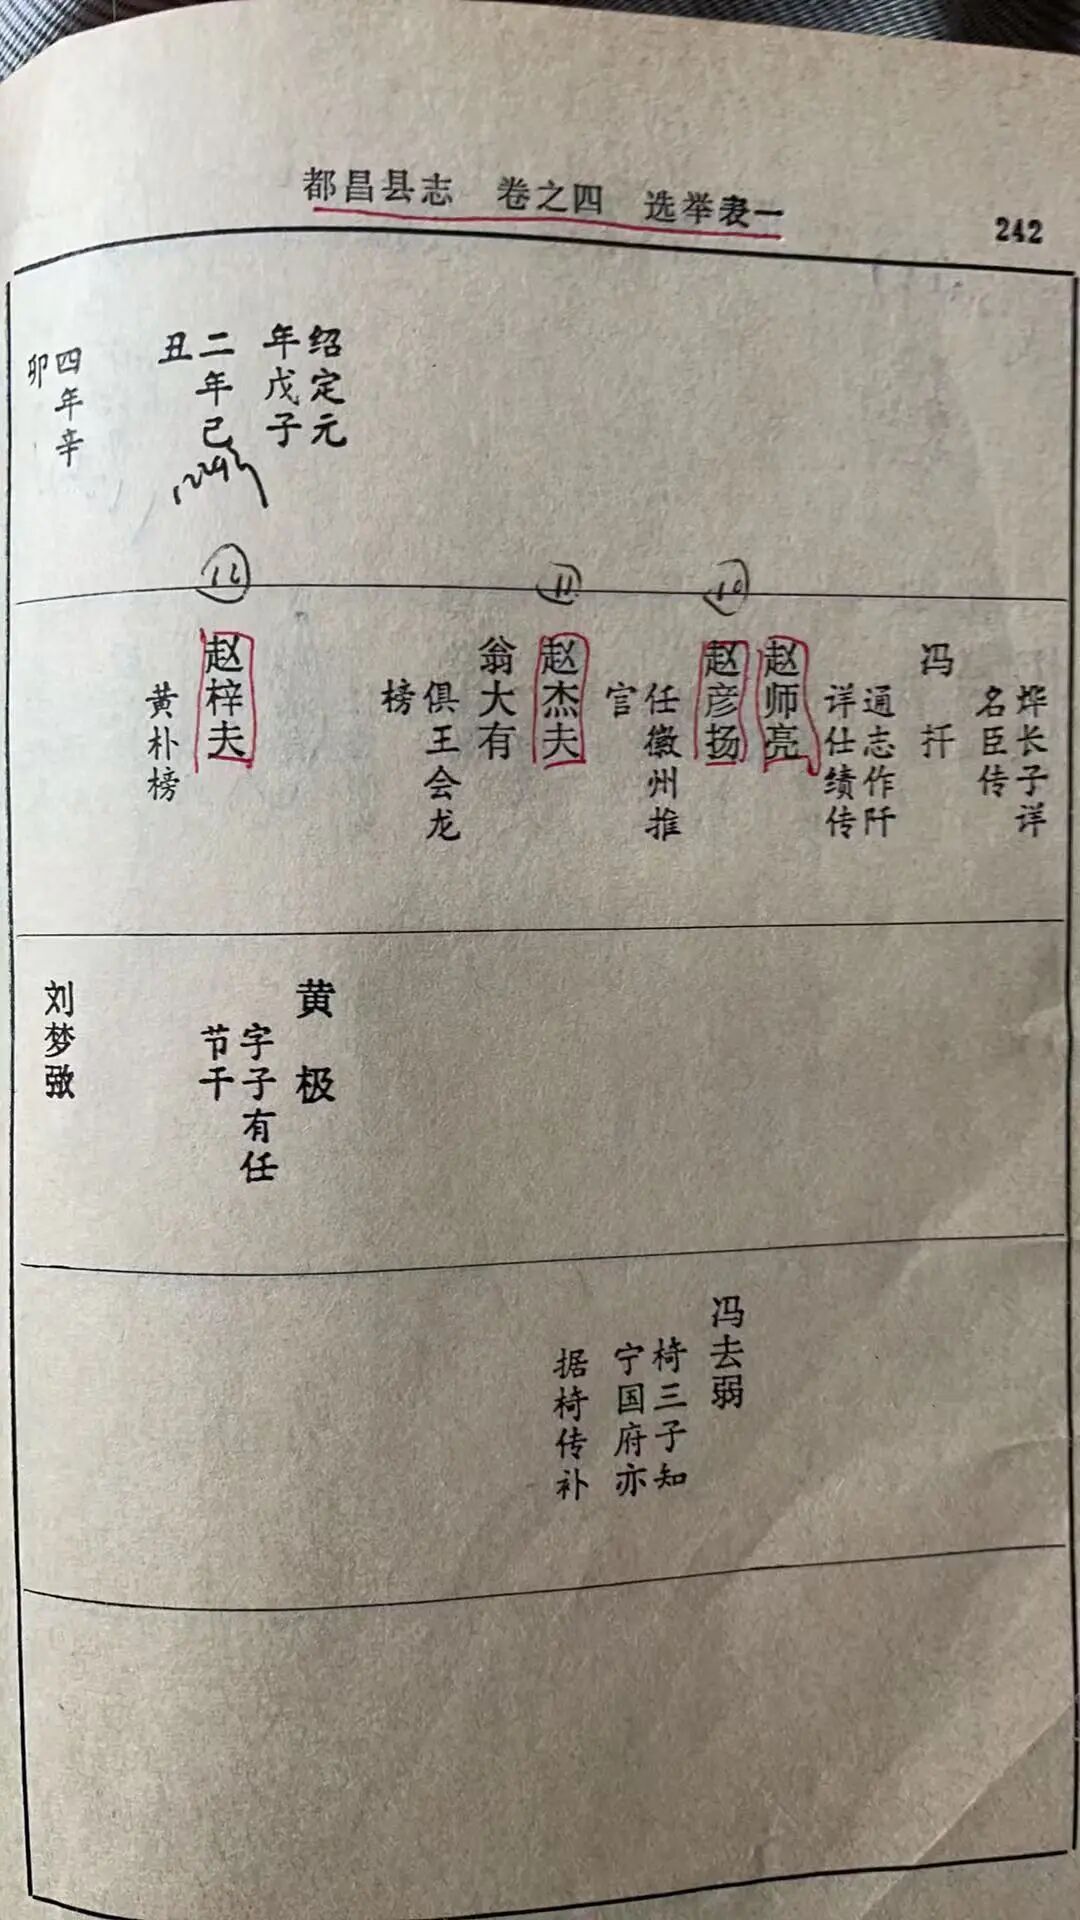 都昌县志 卷之四 选举表一
242
绍定元
年戊子
二年己
丑
1229
四年辛
卯
烨长子详
名臣传
冯扦
通志作阡
详仕绩传
赵师亮
10
赵彦扬
任徽州推
官
11
赵杰夫
翁大有
俱王会龙
榜
12
赵梓夫
黄朴榜
黄极
字子有任
节干
刘梦
冯去弱
椅三子知
宁国府亦
据椅传补